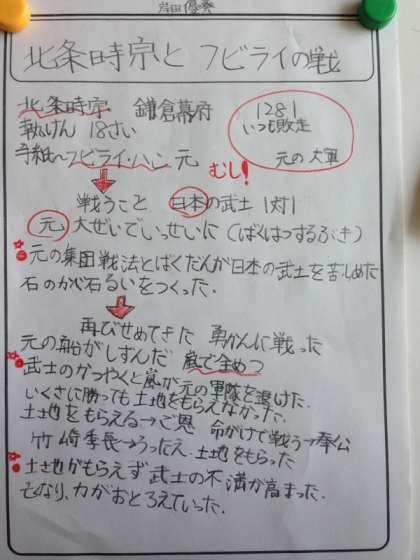 岸田優奏
北条時宗とフビライの戦
北条時宗 鎌倉幕府
執けん 18さい
手紙へフビライ・ハン 元
むし!
1281
いつも敗走
元の大軍
戦うこと 日本の武士 1対1
元 大ぜいでいっせいに (ばくはつするぶき)
元の集団戦法とばくだんが日本の武士を苦しめた
石のかべ石るいをつくった.
再びせめてきた 勇かんに戦った
元の船がしずんだ 嵐で全めつ
武士のかつやくと嵐が元の軍隊を退けた.
いくさに勝っても土地をもらえなかった.
土地をもらえる→ご恩 命がけで戦う→奉公
竹崎季長→うったえ.土地をもらった
土地がもらえず武士の不満が高まった.
亡なり、力がおとろえていった.